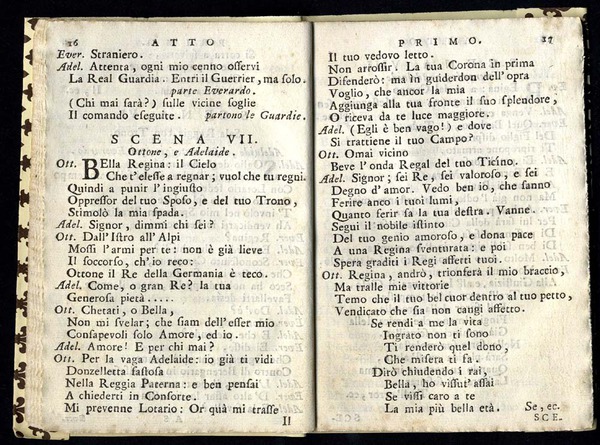 16 ATTO
Ever. Straniero.
Adel. Attenta, ogni mio cenno osservi
La Real Guardia. Entri il Guerrier, ma solo.
parte Everardo.
(Chi mai sarà?) sulle vicine soglie
Il comando eseguite. partono le Guardie.
SCENA VII.
Ottone, e Adelaide.
Ott. BElla Regina: il Cielo
Che t'elesse a regnar; vuol che tu regni.
Quindi a punir l'ingiusto
Oppressor del tuo Sposo, e del tuo Trono,
Stimolò la mia spada.
Adel. Signor, dimmi chi sei?
Ott. Dall'Istro all'Alpi
Mossi l'armi per te: non è già lieve
Il soccorso, ch'io reco:
Ottone il Re della Germania è teco.
Adel. Come, o gran Re? la tua
Generosa pietà.....
Ott. Chetati, o Bella,
Non mi svelar; che siam dell'esser mio
Consapevoli solo Amore, ed io.
Adel. Amore! E per chi mai?
Ott. Per la vaga Adelaide: io già ti vidi
Donzelletta fastosa
Nella Reggia Paterna: e ben pensai
A chiederti in Consorte.
Mi prevenne Lotario: Or quà mi trasse
Il
PRIMO. 17
Il tuo vedovo letto.
Non arrossir. La tua Corona in prima
Difenderò: ma in guiderdon dell'opra
Voglio, che ancor la mia
Aggiunga alla tua fronte il suo splendore,
O riceva da te luce maggiore.
Adel. (Egli è ben vago!) e dove
Si trattiene il tuo Campo?
Ott. Omai vicino
Beve l'onda Regal del tuo Ticino.
Adel. Signor; sei Re, sei valoroso, e sei
Degno d'amor. Vedo ben io, che sanno
Ferire anco i tuoi lumi,
Quanto ferir sa la tua destra. Vanne.
Segui il nobile istinto
Del tuo genio amoroso, e dona pace
A una Regina sventurata: e poi
Spera graditi i Regi affetti tuoi.
Ott. Regina, andrò, trionferà il mio braccio,
Ma tralle mie vittorie
Temo che il tuo bel cuor dentro al tuo petto,
Vendicato che sia non cangi affetto.
Se rendi a me la vita
Ingrato non ti sono
Ti renderò quel dono,
Che misera ti fa.
Dirò chiudendo i rai,
Bella, ho vissut'assai
Se vissi caro a te
La mia più bella età. Se, ec.
SCE.